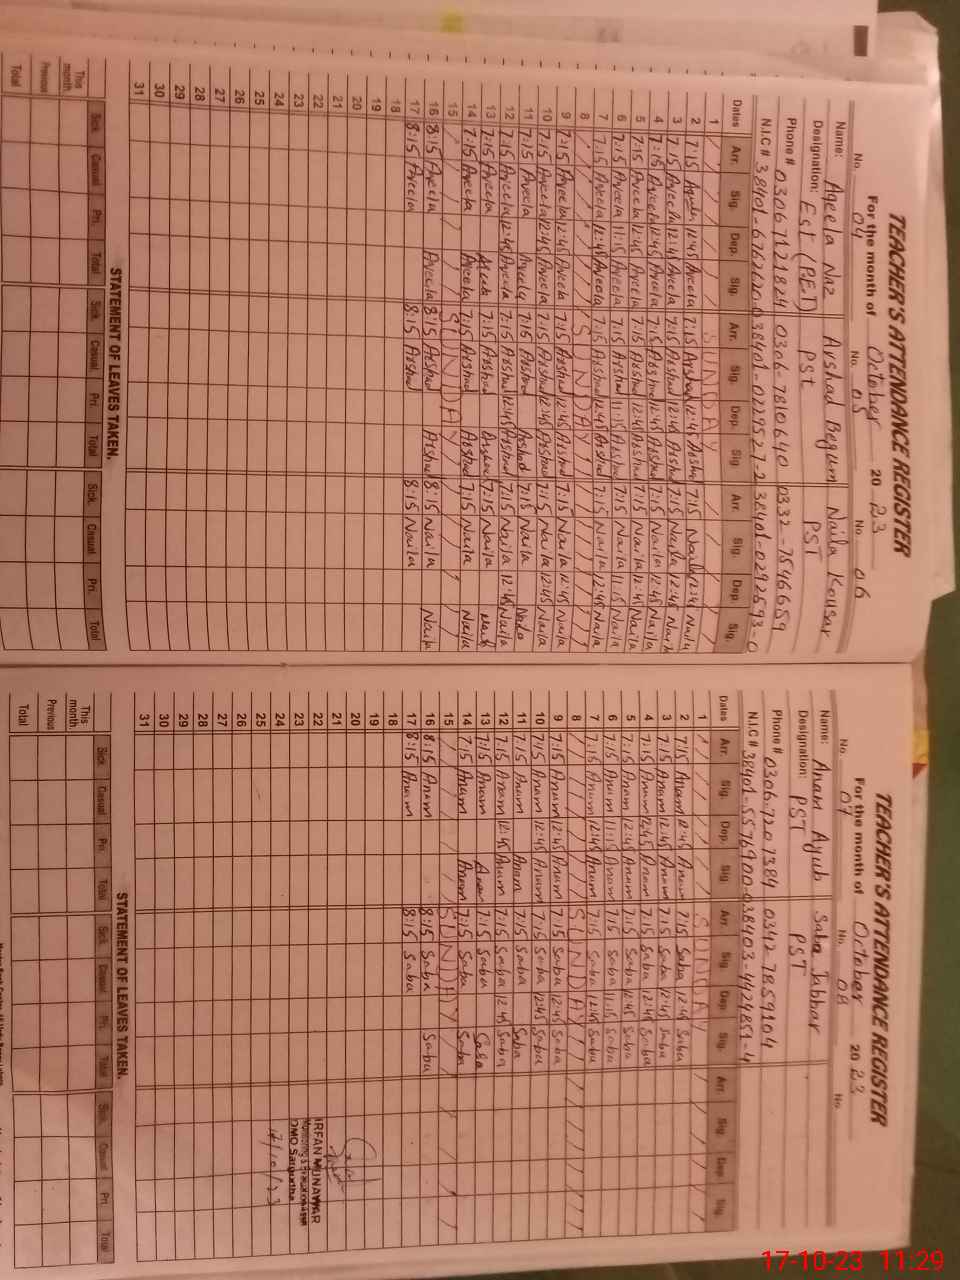 TEACHER'S ATTENDANCE REGISTER
For the month of October 2023
No. 04 No. 05 No. 06
Name: Aqeela Naz Arshad Begum Naila Kousar
Designation: Est (P.E.T) PSt PST
Phone # 0306 7121824 0306-7810640 0332-7546659
N.I.C # 38401-0229527-2 38401-0292693-0
Dates Arr. Sig. Dep. Sig. Arr. Sig. Dep. Sig. Arr. Sig. Dep. Sig.
1 SUNDAY
2 7:15 12:45 Aqeela 7:15 Arshad 12:45 Arshad 7:15 Naila 12:45 Naila
3 7:15 Aqeela 12:45 Aqeela 7:15 Arshad 12:45 Arshad 7:15 Naila 12:45 Naila
4 7:15 Aqeela 12:45 Aqeela 7:15 Arshad 12:45 Arshad 7:15 Naila 12:45 Naila
5 7:15 Aqeela 12:45 Aqeela 7:15 Arshad 12:45 Arshad 7:15 Naila 12:45 Naila
6 7:15 Aqeela 11:15 Aqeela 7:15 Arshad 11:15 Arshad 7:15 Naila 11:15 Naila
7 7:15 Aqeela 12:45 Aqeela 7:15 Arshad 12:45 Arshad 7:15 Naila 12:45 Naila
8 SUNDAY
9 7:15 Aqeela 12:45 Aqeela 7:15 Arshad 12:45 Arshad 7:15 Naila 12:45 Naila
10 7:15 Aqeela 12:45 Aqeela 7:15 Arshad 12:45 Arshad 7:15 Naila 12:45 Naila
11 7:15 Aqeela Aqeela 7:15 Arshad Arshad 7:15 Naila
12 7:15 Aqeela 12:45 Aqeela 7:15 Arshad 12:45 Arshad 7:15 Naila 12:45 Naila
13 7:15 Aqeela 7:15 Arshad 7:15 Naila
14 7:15 Aqeela Aqeela 7:15 Arshad Arshad 7:15 Naila Naila
15 SUNDAY
16 8:15 Aqeela Aqeela 8:15 Arshad Arshad 8:15 Naila Naila
17 8:15 Aqeela 8:15 Arshad 8:15 Naila
18
19
20
21
22
23
24
25
26
27
28
29
30
31
STATEMENT OF LEAVES TAKEN.
Sick. Casual Pri. Total Sick. Casual Pri. Total Sick. Casual Pri. Total
This month
Previous
Total
TEACHER'S ATTENDANCE REGISTER
For the month of October 2023
No. 07 No. 08 No.
Name: Anam Ayub Saba Jabbar
Designation: PST PST
Phone # 0306-7207384 0342 7859104
N.I.C # 38401-5576900-0 38403-4424859-4
Dates Arr. Sig. Dep. Sig. Arr. Sig. Dep. Sig. Arr. Sig. Dep. Sig.
1 SUNDAY
2 7:15 Anam 12:45 Anam 7:15 Saba 12:45 Saba
3 7:15 Anam 12:45 Anam 7:15 Saba 12:45 Saba
4 7:15 Anam 12:45 Anam 7:15 Saba 12:45 Saba
5 7:15 Anam 12:45 Anam 7:15 Saba 12:45 Saba
6 7:15 Anam 11:15 Anam 7:15 Saba 11:15 Saba
7 7:15 Anam 12:45 Anam 7:15 Saba 12:45 Saba
8 SUNDAY
9 7:15 Anam 12:45 Anam 7:15 Saba 12:45 Saba
10 7:15 Anam 12:45 Anam 7:15 Saba 12:45 Saba
11 7:15 Anam Anam 7:15 Saba Saba
12 7:15 Anam 12:45 Anam 7:15 Saba 12:45 Saba
13 7:15 Anam Anam 7:15 Saba Saba
14 7:15 Anam Anam 7:15 Saba Saba
15 SUNDAY
16 8:15 Anam 8:15 Saba Saba
17 8:15 Anam 8:15 Saba
18
19
20
21
22
IRFAN MUNAWAR
23
DMO Sargodha
24
17/10/23
25
26
27
28
29
30
31
STATEMENT OF LEAVES TAKEN.
Sick Casual Pri. Total Sick. Casual Pri. Total Sick. Casual Pri. Total
This month
Previous
Total
17-10-23 11:29